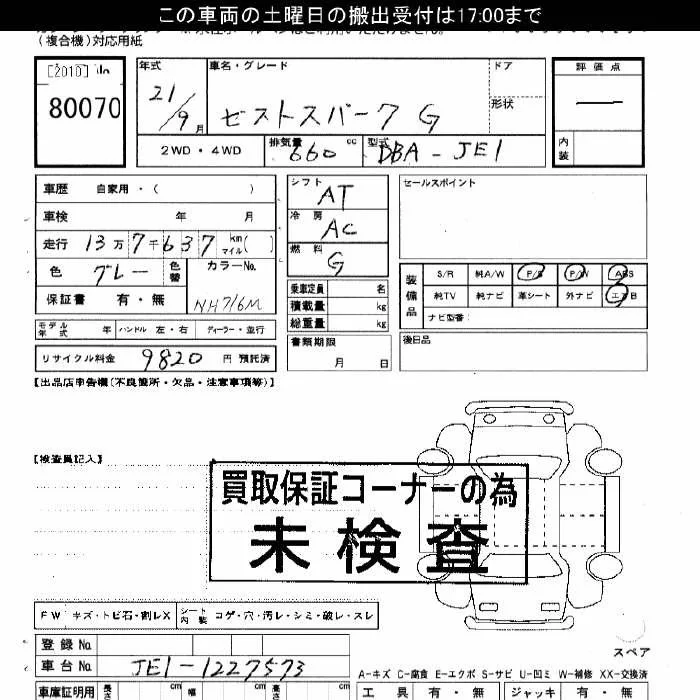 この車両の土曜日の搬出受付は17:00まで
(複合機)対応用紙
[2010] No
80070
年式 車名・グレード ドア
21/9月 ゼストスパーク G 形状
2WD・4WD 排気量 660 cc 型式 DBA-JE1
評価点
内装
車歴 自家用・( )
車検 年 月
走行 13万7千637 km マイル ( )
色 グレー 色替 カラーNo.
保証書 有・無 NH716M
モデル年式 年 ハンドル 左・右 ディーラー・並行
リサイクル料金 9820 円 預託済
シフト AT
冷房 AC
燃料 G
乗車定員 名
積載量 kg
総重量 kg
書類期限
月 日
セールスポイント
装備品 S/R 純A/W P/S P/W ABS
純TV 純ナビ 革シート 外ナビ エアB
ナビ型番:
後日品
【出品店申告欄(不良箇所・欠品・注意事項等)】
【検査員記入】
買取保証コーナーの為
未検査
FW キズ・トビ石・割レX シート内装 コゲ・穴・汚レ・シミ・破レ・スレ
登録No.
車台No. JE1-1227573
車庫証明用 長さ cm 幅 cm 高さ cm
スペア
A-キズ C-腐食 E-エクボ S-サビ U-凹ミ W-補修 XX-交換済
工具 有・無 ジャッキ 有・無